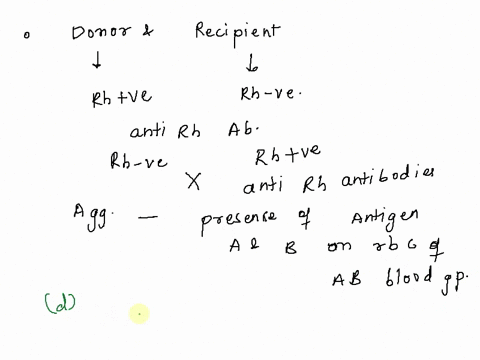 Donor & Recipient
↓ ↓
Rh +ve Rh -ve.
anti Rh Ab.
Rh -ve Rh +ve
X anti Rh antibodies
Agg. — presence of Antigen
A & B on rbc of
AB blood gp.
(d)